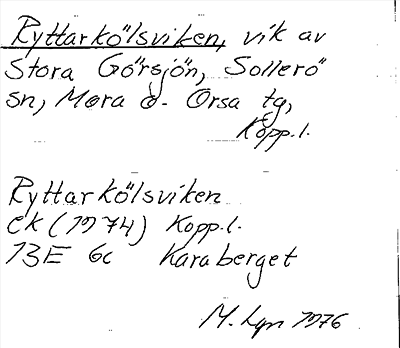 Ryttarkölsviken, vik av
Stora Görsjön, Sollerö
sn, Mora o. Orsa tg,
Kopp.l.
Ryttarkölsviken
ek (1974) Kopp.l.
13E 6c Karaberget
M. Lgn 1976